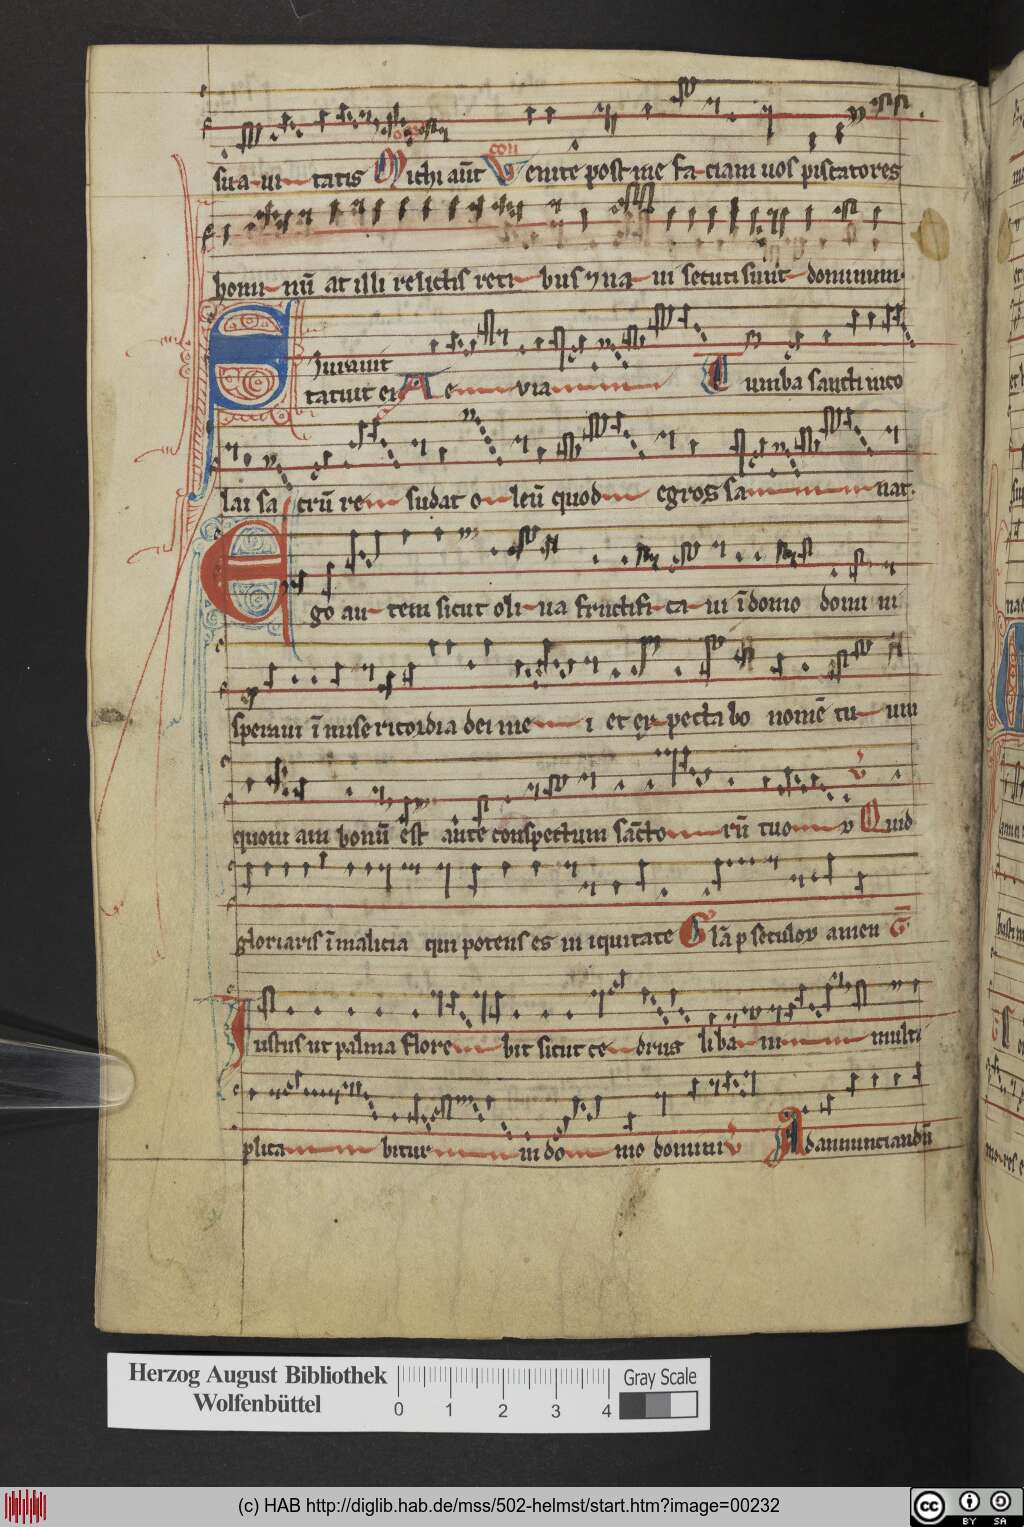 sua-ui tatis Michi aūt Venite post me fa-ciam uos piscatores
con
homi nū at illi relictis reti bus ⁊ na ui secuti sunt dominum.
Jurauit
tatuit ei Ae via Tumba sancti nico
lai sa crū re sudat o leū quod egros sa nat.
Ego au-tem sicut oli-ua fructifi-ca-ui ī domo domi ni
speraui ī mise ricordia dei me i et ex pecta bo nomē tu um
quoni am bonū est ante conspectum sācto rū tuo v Quid
gloriaris ī malicia qui potens es in iquitate Glā p seculoꝝ amen G
Iustus ut palma flore bit sicut ce drus liba ni multi
plica bitur in do mo domini v Adannunciandū
Herzog August Bibliothek
Wolfenbüttel
0 1 2 3 4
Gray Scale
(c) HAB http://diglib.hab.de/mss/502-helmst/start.htm?image=00232
cc BY SA